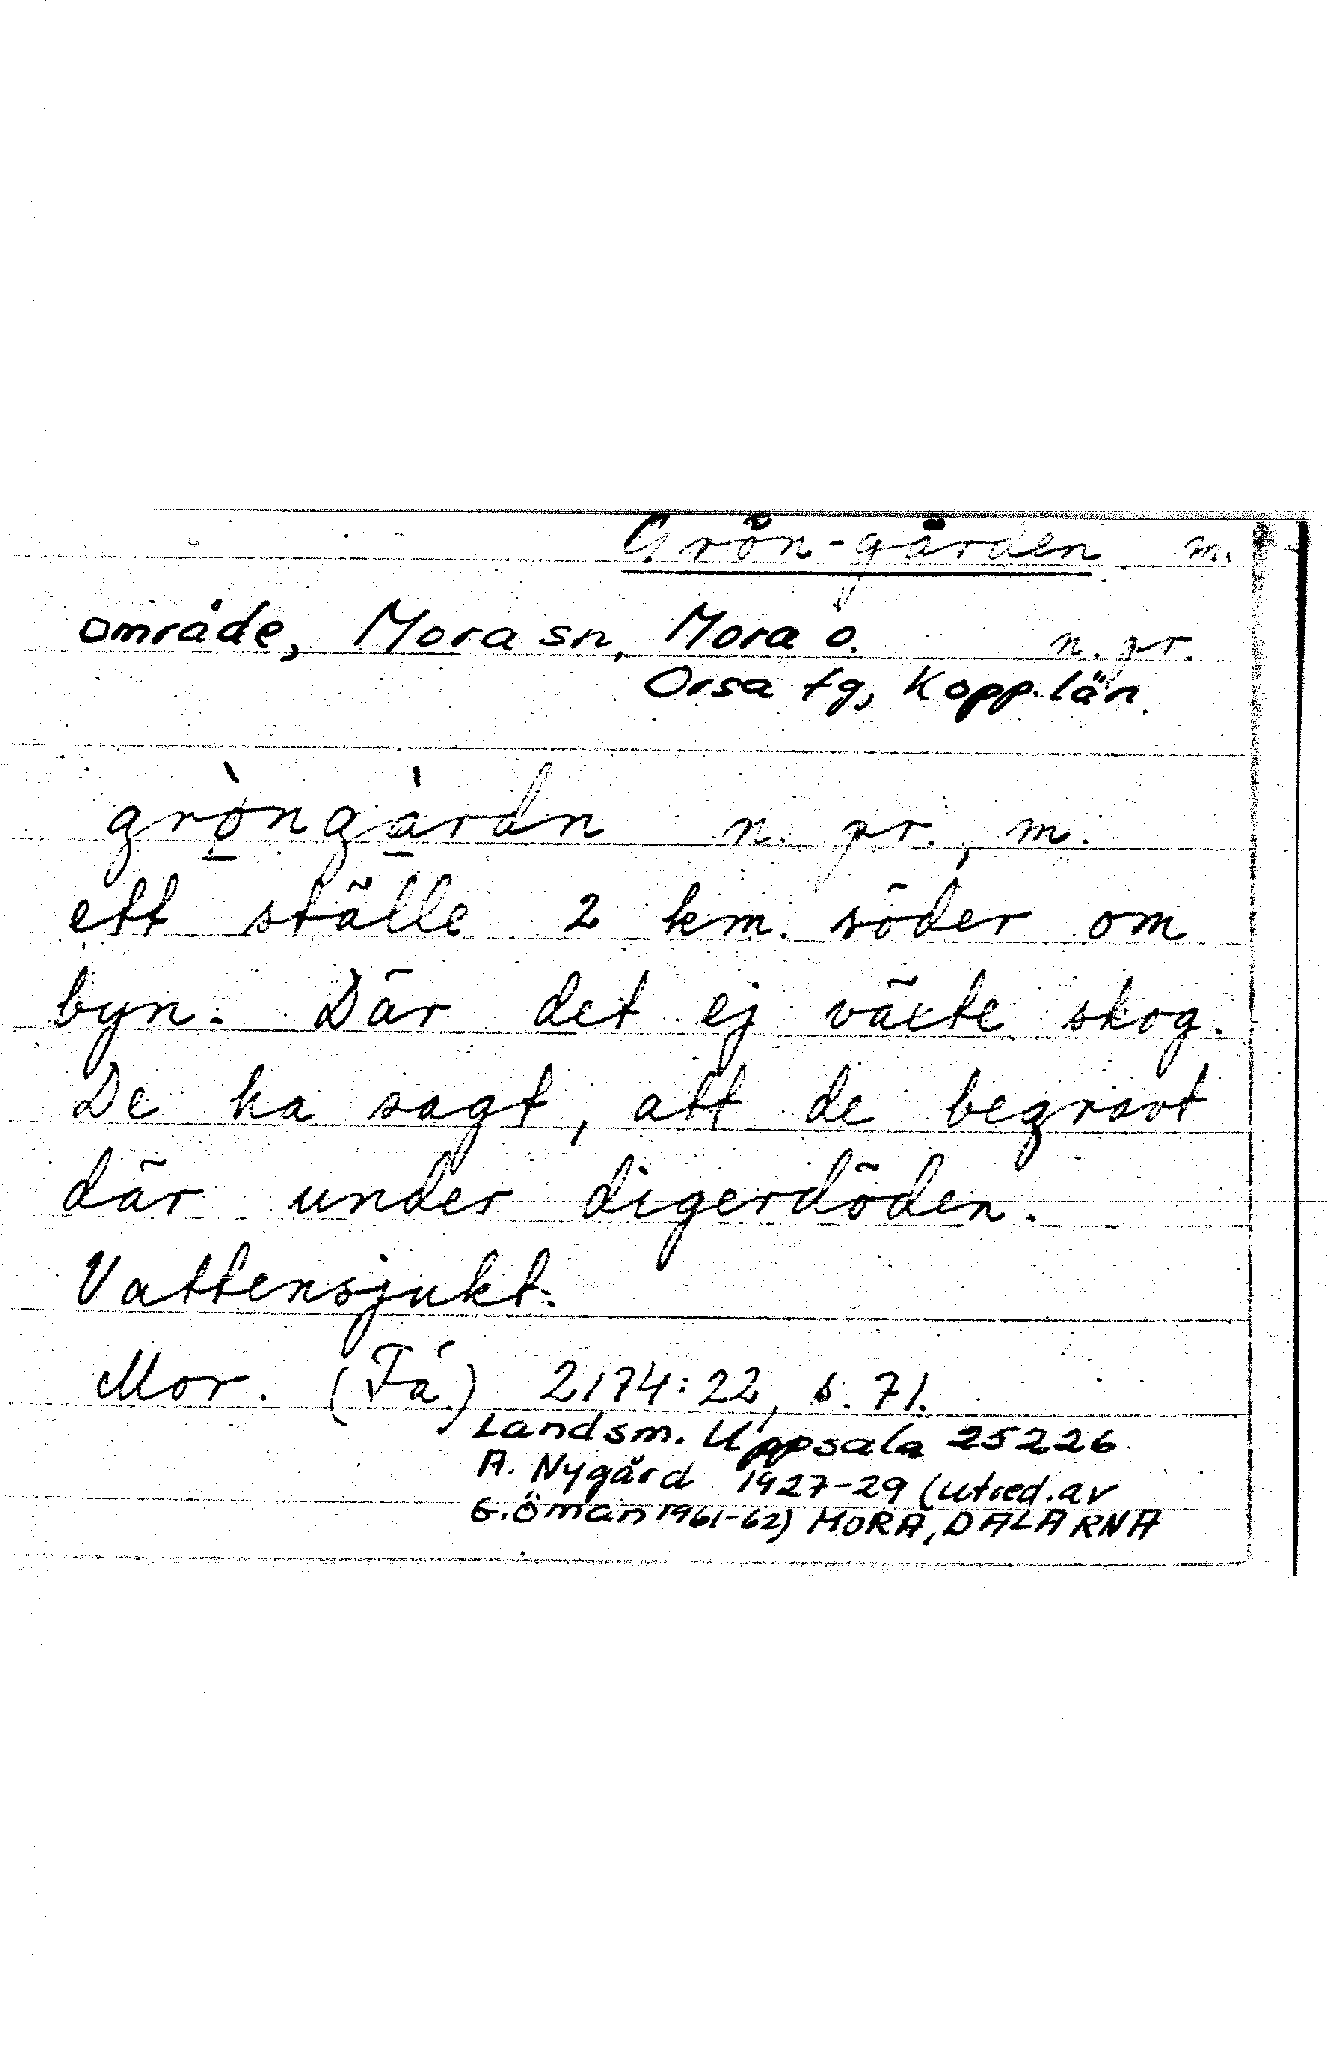 Grön-gården m.
område, Mora sn, Mora o. n. pr.
Orsa tg, Kopp. län.
grò̱ngà̱rdn n. pr., m.
ett ställe 2 km. söder om
byn. Där det ej växte skog.
De ha sagt, att de begravt
där under digerdöden.
Vattensjukt.
Mor. (Få) 2174:22, s. 71.
Landsm. Uppsala 25226
A. Nygård 1927-29 (utred. av
G. Öman 1961-62) MORA, DALARNA